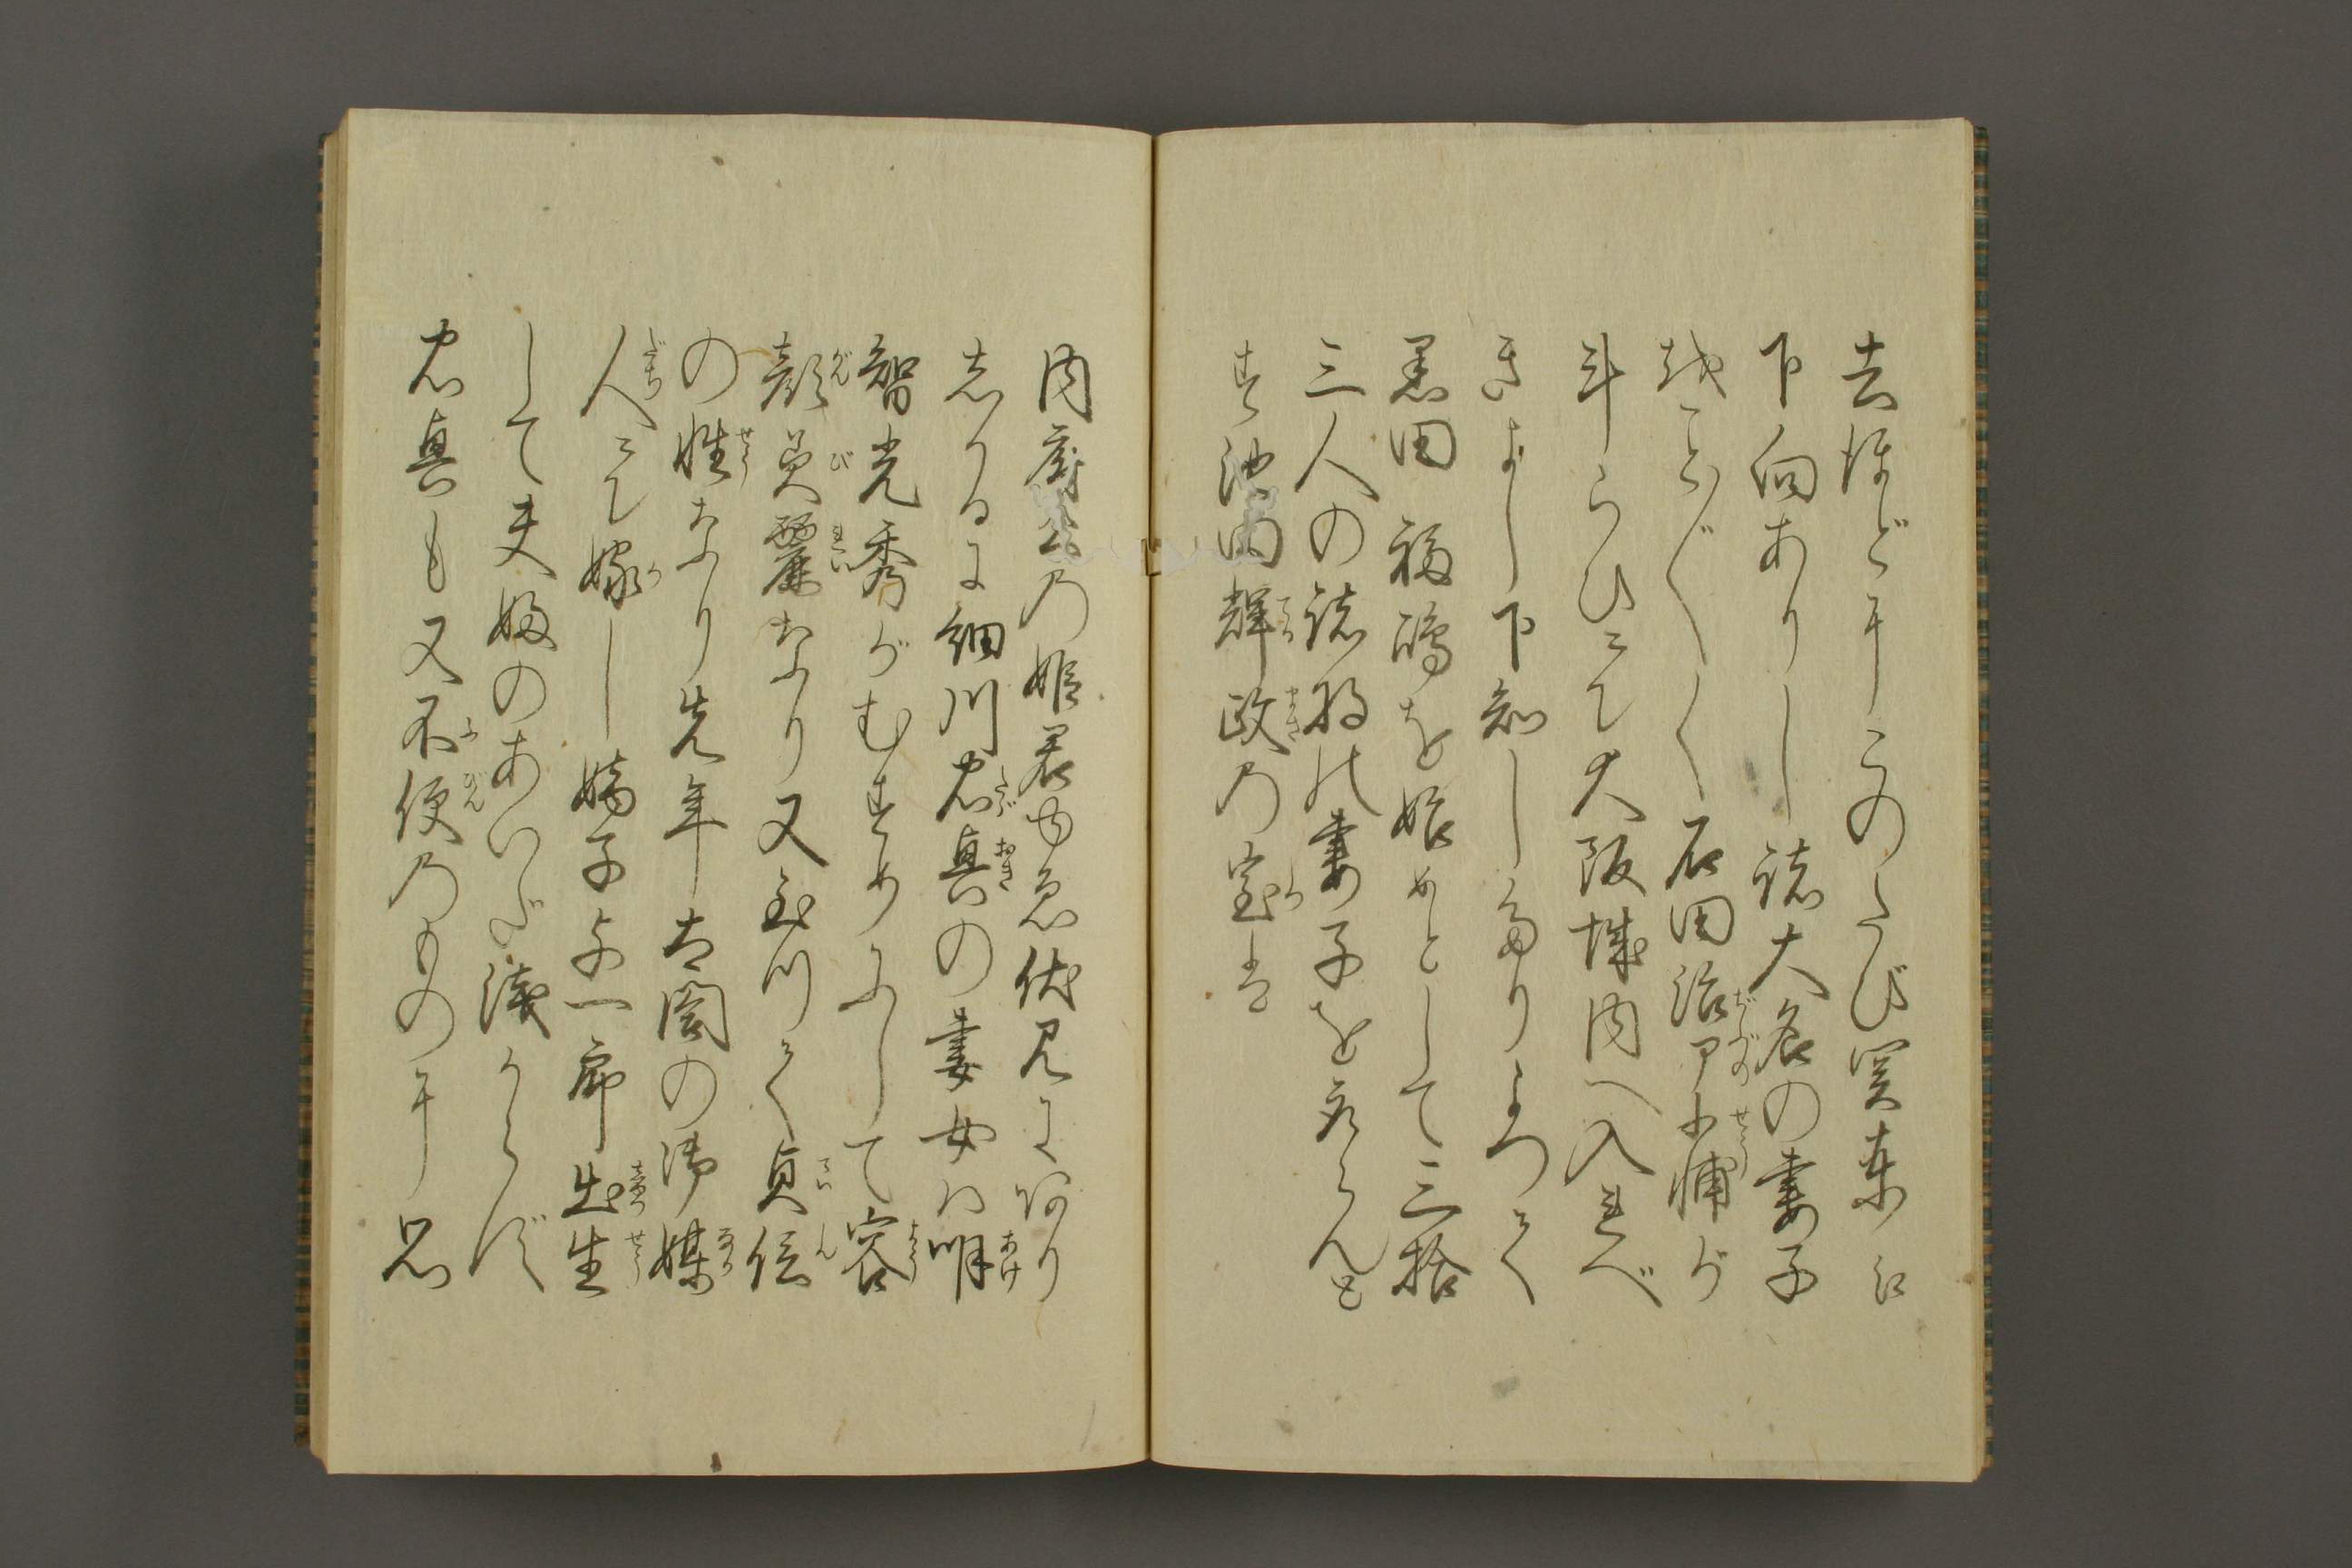 去ほどにこのたび関東江
下向ありし諸大名の妻子
ことごとく石田治部少輔が
斗らひにて大阪城内へ入るべ
きよし下知しありよつて
黒田福嶋を始めとして三拾
三人の諸将の妻子を取らんと
す池田輝政の室は
内府公の姫君ゆゑ伏見にあり
しかるに細川忠興の妻女ハ明
智光秀がむすめにして容
顔美麗なり又至つて貞信
の性なり先年太閤の御媒
人にて嫁し嫡子与一郎出生
して夫婦のあいだ浅からず
忠興も又不便のものに思